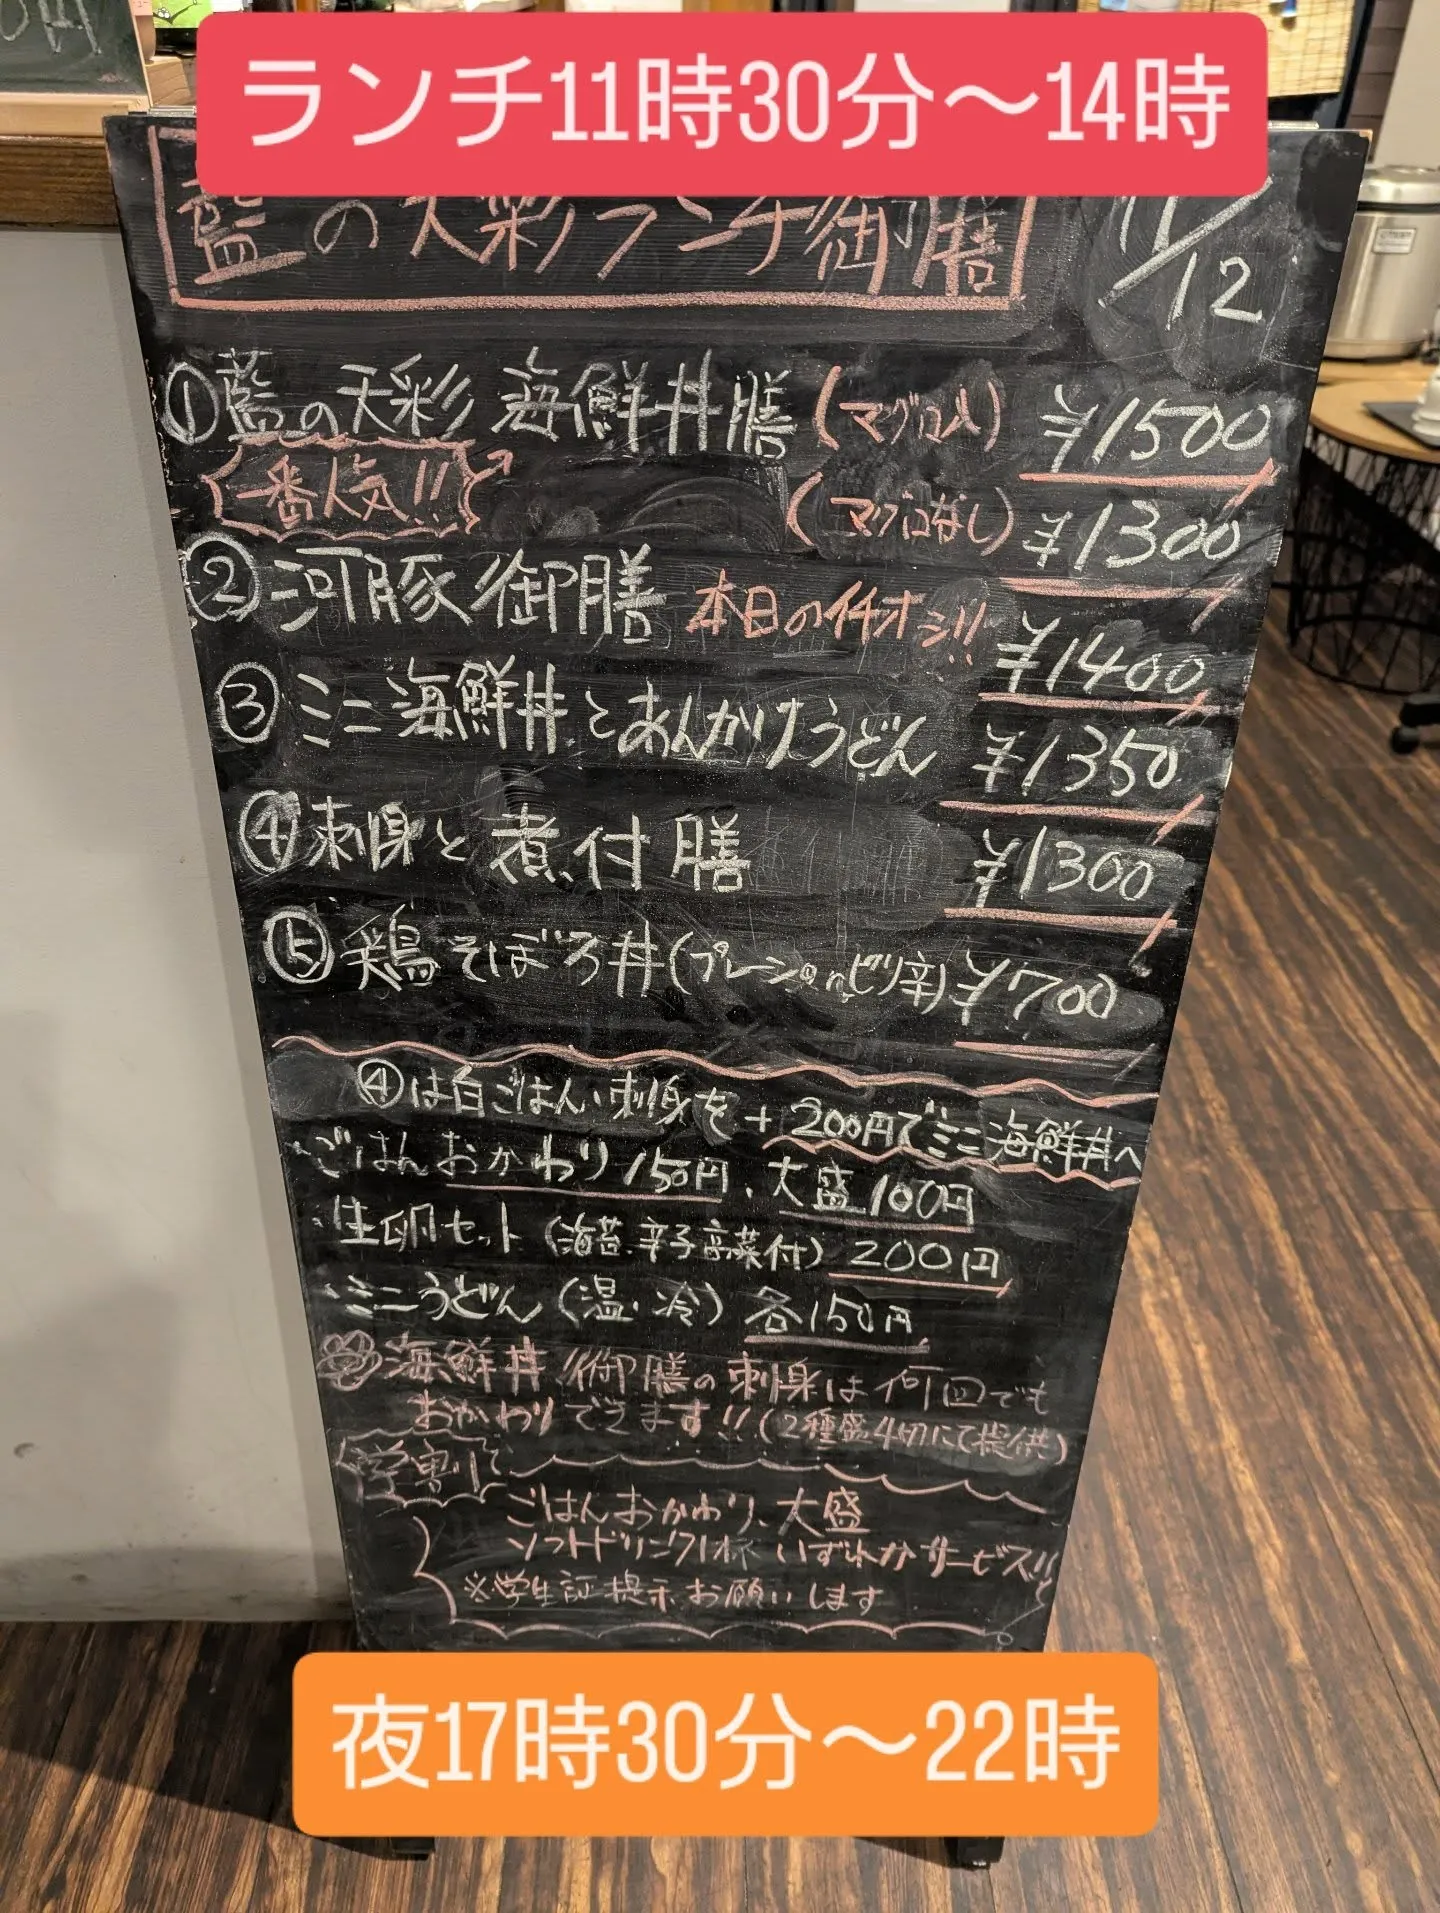 ランチ11時30分〜14時
藍の天彩ランチ御膳
11/12
①藍の天彩 海鮮丼膳(マグロ入) ¥1500
一番人気!!
(マグロなし) ¥1300
②河豚御膳 本日のイチオシ!! ¥1400
③ミニ海鮮丼とあんかけうどん ¥1350
④刺身と煮付膳 ¥1300
⑤鶏そぼろ丼(プレーンorピリ辛) ¥700
④は白ごはん、刺身を+200円でミニ海鮮丼へ
ごはんおかわり150円、大盛100円
生卵セット(海苔、辛子高菜付)200円
ミニうどん(温・冷)各150円
海鮮丼 御膳の刺身は何回でも
おかわりできます!!(2種盛4切にて提供)
学割
ごはんおかわり、大盛
ソフトドリンク1杯 いずれかサービス!!
※学生証提示お願いします
夜17時30分〜22時